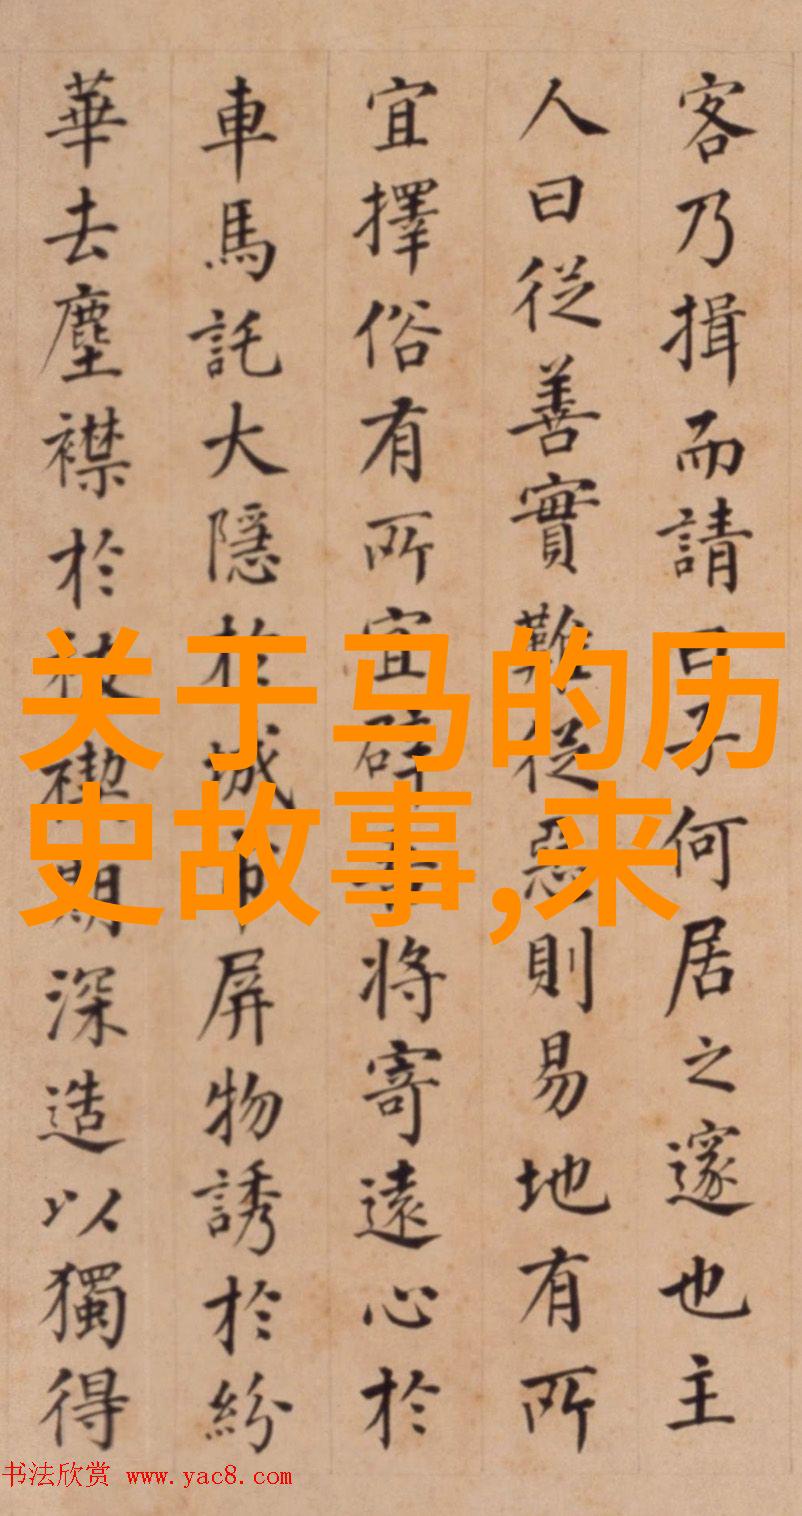 客乃揖而請曰子何居之邃也主
人曰從善實難從惡則易地有所
宜擇俗有所宜將寄遠心於
車馬託大隱於城市屏物誘於紛
華去塵襟於祓禊期深造以獨得
关于马的历
史故事,来
书法欣赏 www.yac8.com